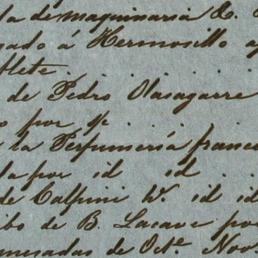 la de maquinaria &.
sado á Hermosillo
flete.
de Pedro Olasagarre
o por
la Perfumería france
la por id id
de Calpini W. id id
ibo de B. Lacave por
mesadas de Oct.e Nov.